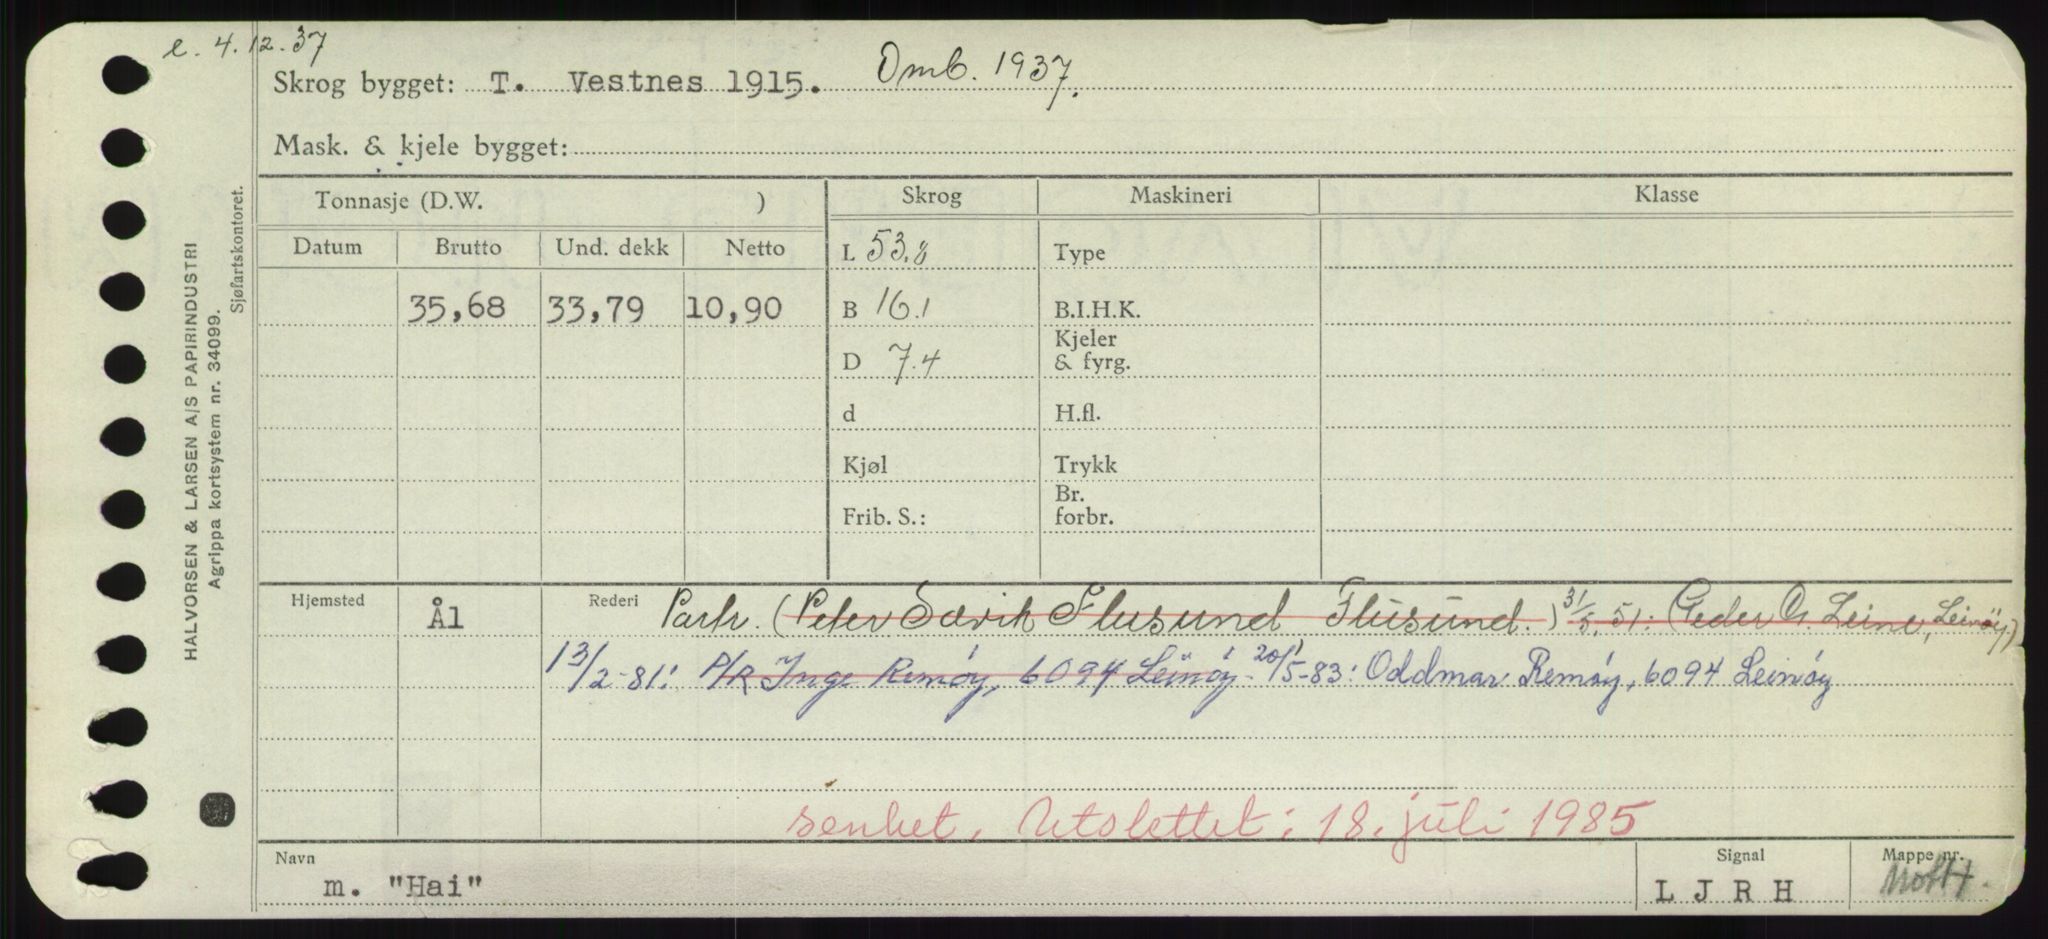 e. 4.12.37
Skrog bygget: T. Vestnes 1915. Omb. 1937.
Mask. & kjele bygget:
Tonnasje (D.W. ) Skrog Maskineri Klasse
Datum Brutto Und. dekk Netto L 53.8 Type
35,68 33,79 10,90 B 16.1 B.I.H.K.
Kjeler
D 7.4 & fyrg.
d H.fl.
Kjøl Trykk
Br.
Frib. S.: forbr.
Hjemsted Ål Rederi Partr. (Peter Sævik Flusund Flusund.) 31/5.51: (Peder O. Leine, Leinöy.)
13/2-81: P/R Inge Remöy, 6094 Leinöy. 20/5-83: Oddmar Remöy, 6094 Leinöy
senket. Utslettet: 18. juli 1985
Navn Signal Mappe nr.
m. "Hai" L J R H
HALVORSEN & LARSEN A/S PAPIRINDUSTRI
Agrippa kortsystem nr. 34099.
Sjøfartskontoret.